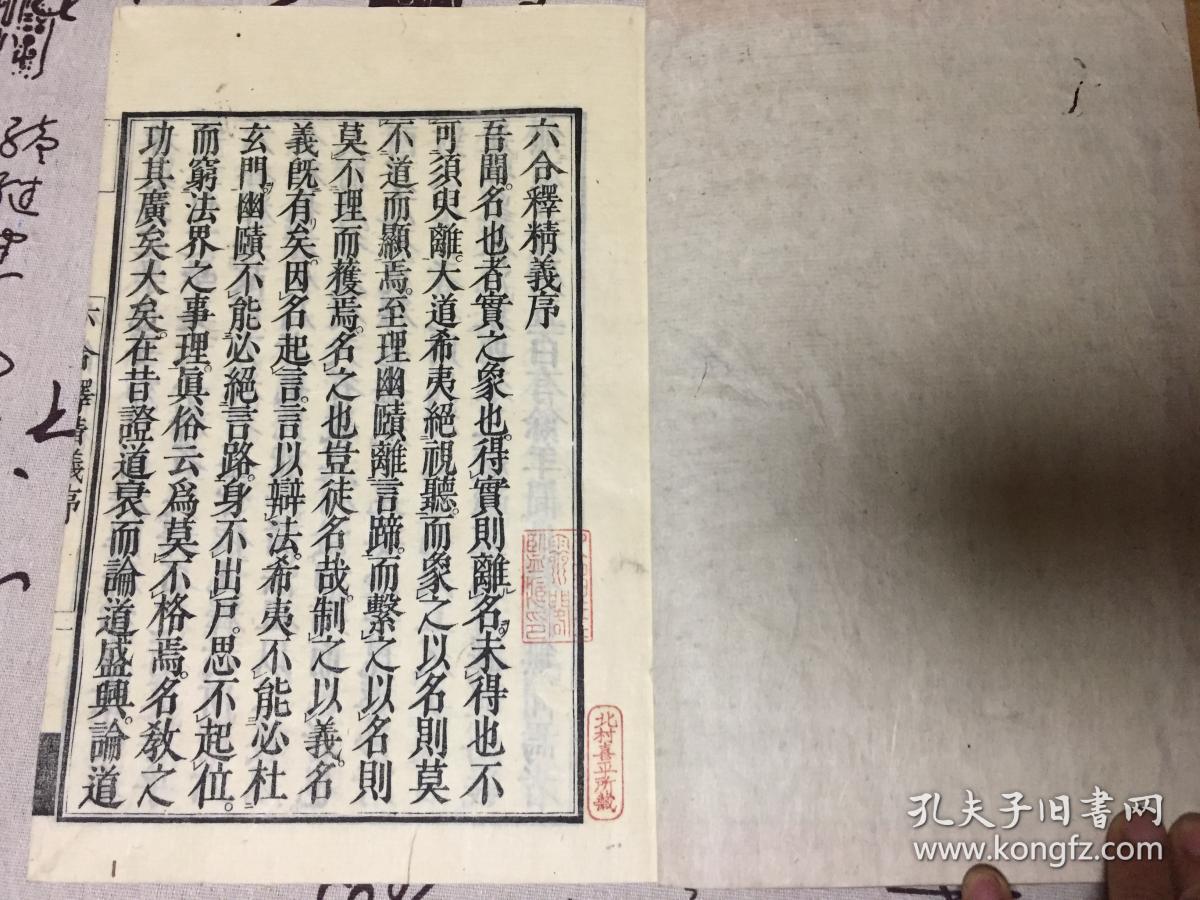 六合釋精義序
吾聞。名也者實之象也。得實則離名。未得也不
可須臾離。大道希夷絕視聽。而象之以名則莫
不道而顯焉。至理幽賾離言蹄。而繫之以名則
莫不理而獲焉。名之也豈徒名哉。制之以義。名
義既有矣。因名起言。言以辯法。希夷不能必杜
玄門。幽賾不能必絕言路。身不出戶。思不起位。
而窮法界之事理。眞俗云爲莫不格焉。名教之
功其廣矣大矣。在昔證道衰而論道盛興。論道
六合釋精義序
一
北村喜平所藏
孔夫子旧书网
www.kongfz.com